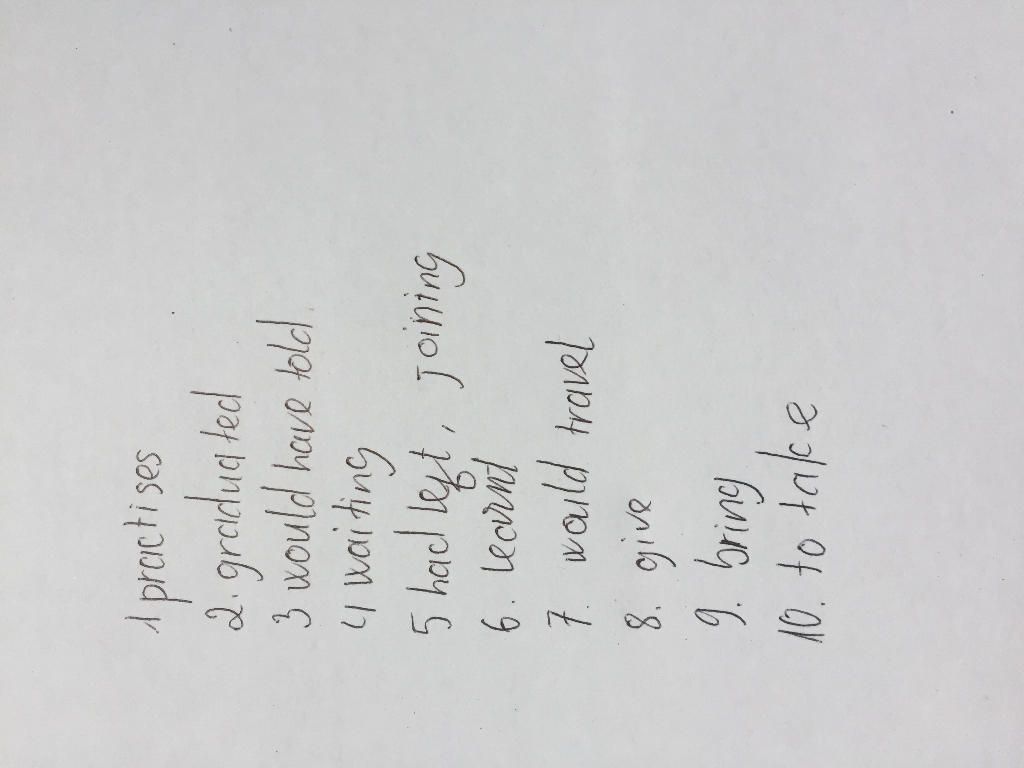 1 practises
2. graduated
3 would have told.
4 waiting
5 had left, joining
6. learnt
7. would travel
8. give
9. bring
10. to take